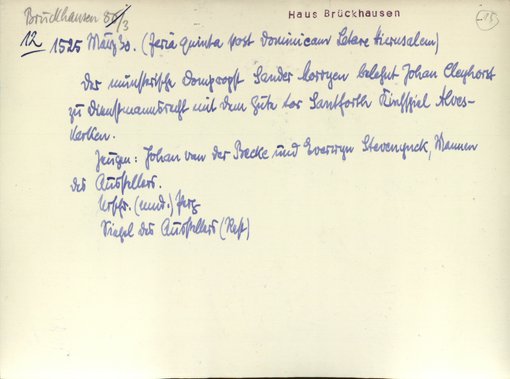 Brückhausen 86/3
Haus Brückhausen
15
12 1525 März 30. (feria quinta post Dominicam Letare Hierusalem)
Der münsterische Dompropst Sander Morryen belehnt Johan Cleyhorst
zu Dienstmannsrecht mit dem Gute tor Santforth Kirchspiel Alves-
kerken.
Zeugen: Johan van der Becke und Everwyn Stevenynck, Mannen
des Ausstellers.
Urschr. (mnd.) Perg
Siegel des Ausstellers (Rest)